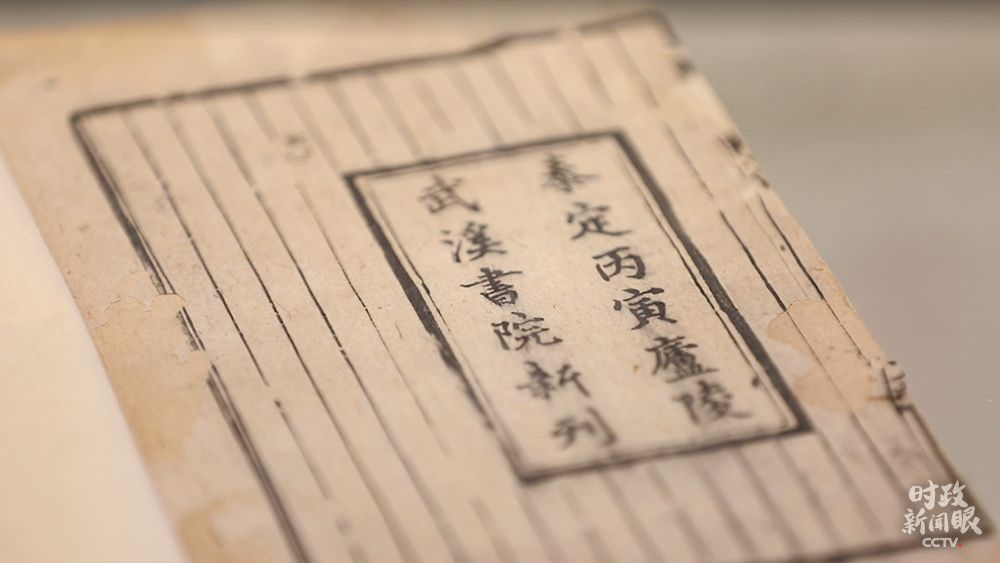 泰定丙寅廬陵
武溪書院新刊
时政
新闻眼
CCTV.